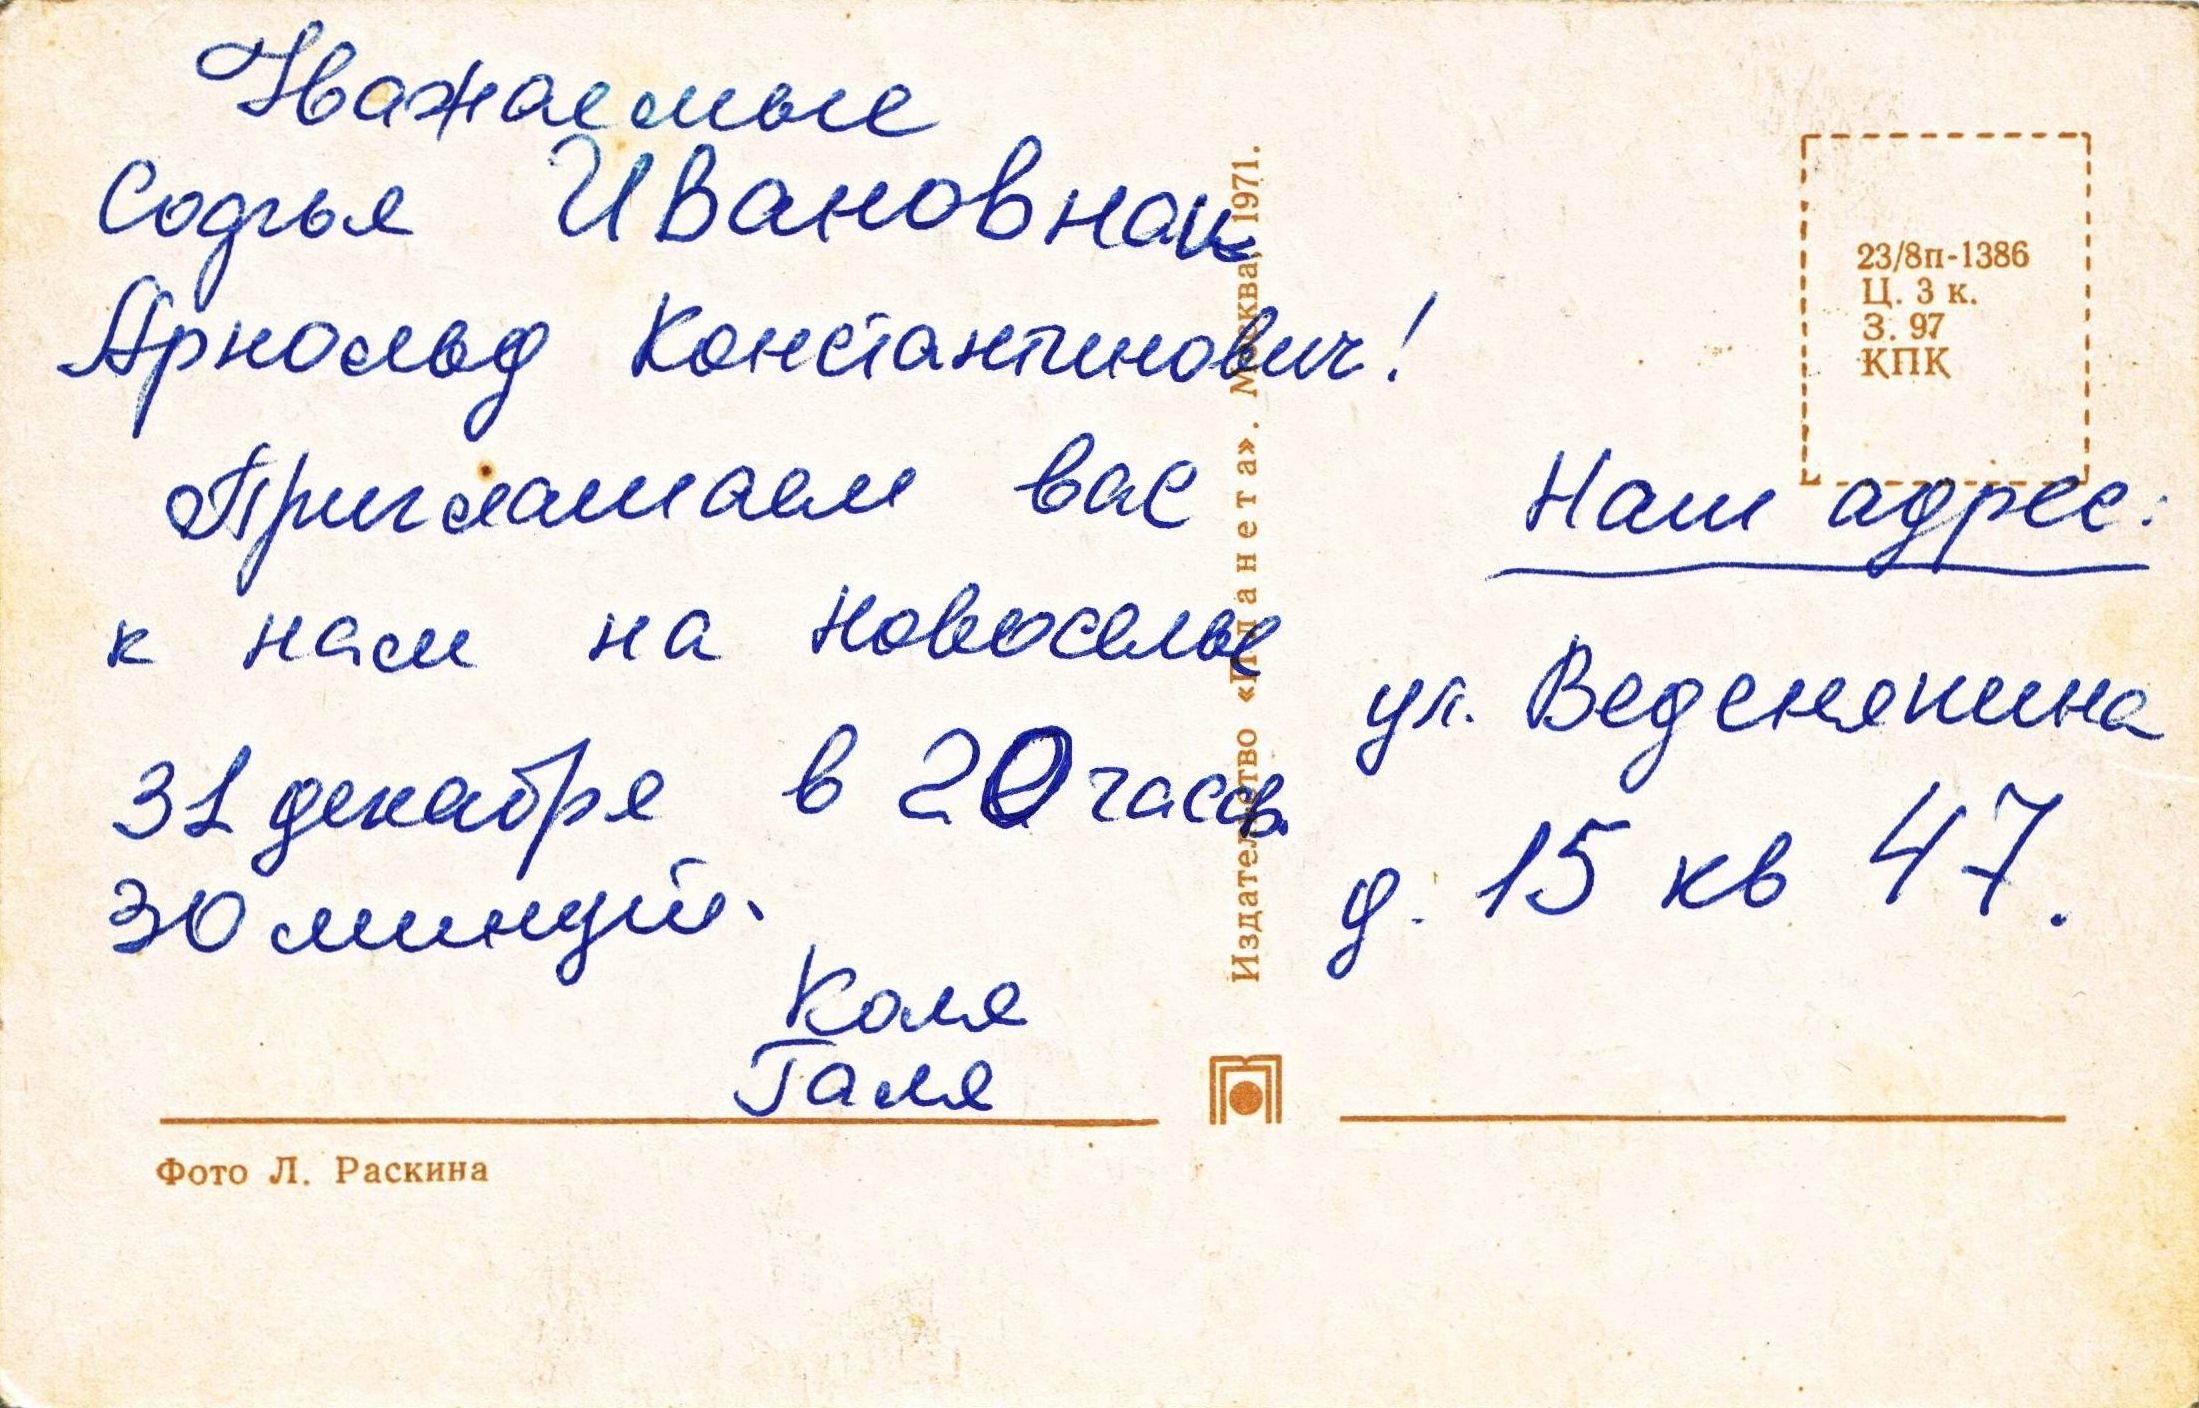 Уважаемые
Софья Ивановна и
Арнольд Константинович!
Приглашаем вас
к нам на новоселье
31 декабря в 20 часов.
30 минут.
Коля
Галя
Фото Л. Раскина
Издательство «Планета». Москва, 1971.
23/8п-1386
Ц. 3 к.
З. 97
КПК
Наш адрес:
ул. Веденяпина
д. 15 кв 47.